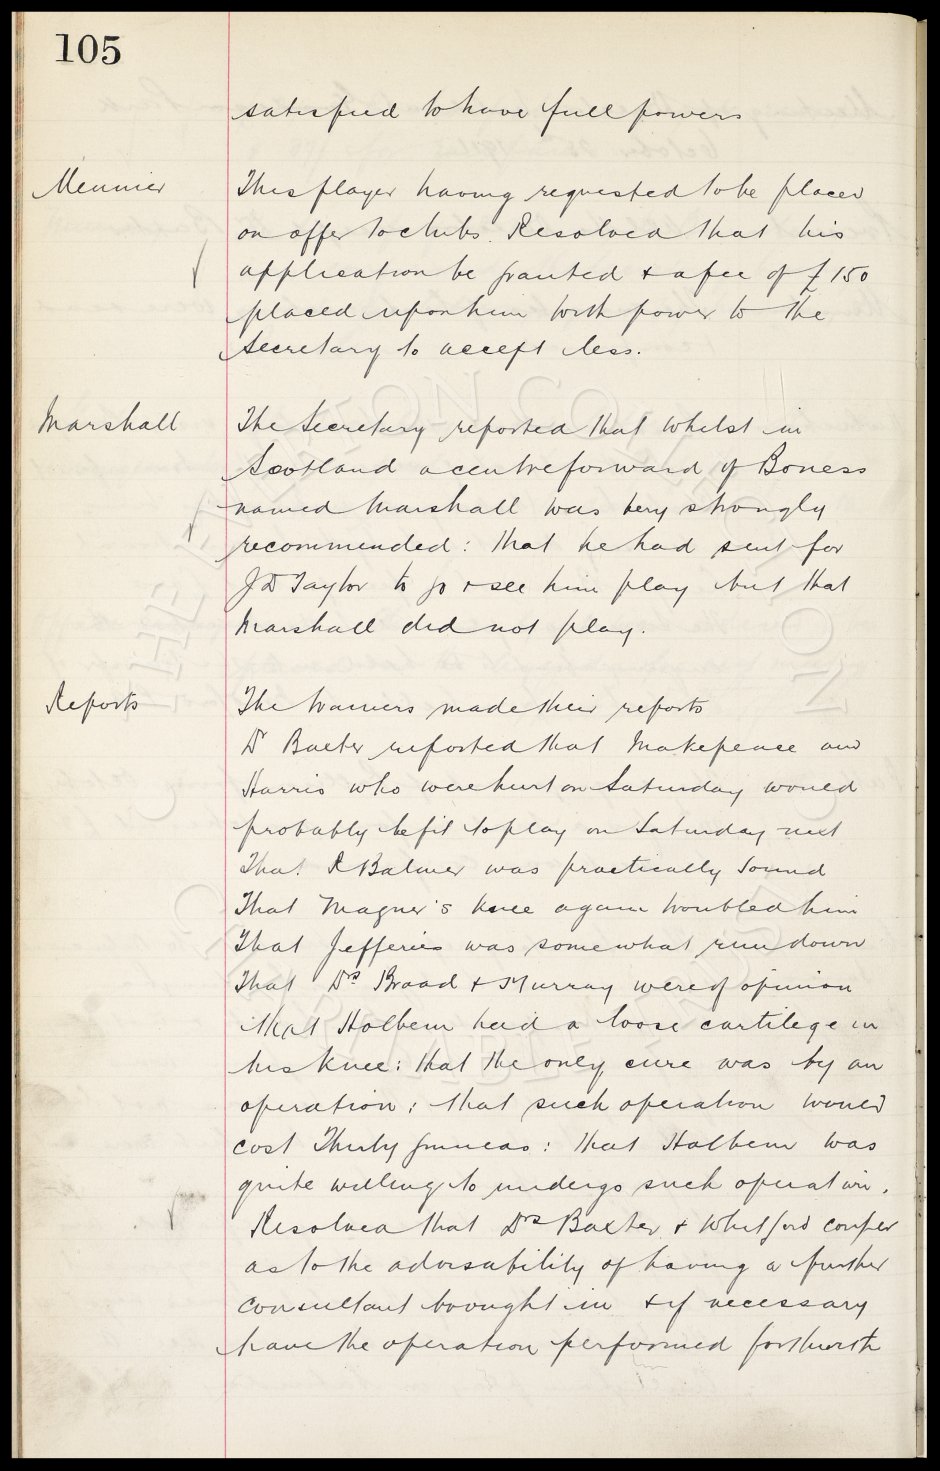 105
satisfied to have full powers
Meunier
This player having requested to be placed
on offer to clubs. Resolved that his
application be granted & a fee of £150
placed upon him with power to the
Secretary to accept less.
Marshall
The Secretary reported that whilst in
Scotland a centreforward of Boness
named Marshall was very strongly
recommended: that he had sent for
J D Taylor to go & see him play but that
Marshall did not play.
Reports
The trainers made their reports
Dr Baxter reported that Makepeace and
Harris who were hurt on Saturday would
probably be fit to play on Saturday next
That R Balmer was practically sound
That Magner's knee again troubled him
That Jefferies was somewhat run down
That Drs Broad & Murray were of opinion
that Holbem had a loose cartilege in
his knee: that the only cure was by an
operation: that such operation would
cost Thirty guineas: that Holbem was
quite willing to undergo such operation.
Resolved that Drs Baxter & Whitford confer
as to the advisability of having a further
consultant brought in & if necessary
have the operation performed forthwith